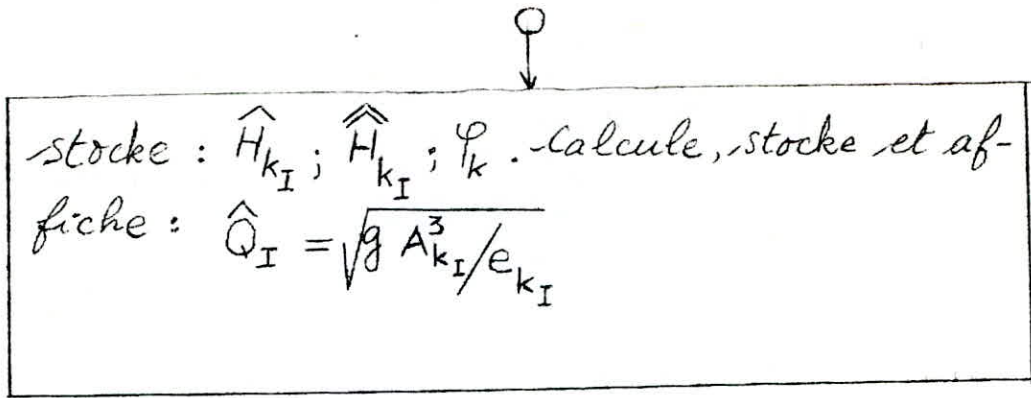 stocke : $\widehat{H}_{k_I}$ ; $\widehat{\widehat{H}}_{k_I}$ ; $\varphi_k$ . Calcule, stocke et af-
fiche : $\widehat{Q}_I = \sqrt{g A^3_{k_I} / e_{k_I}}$